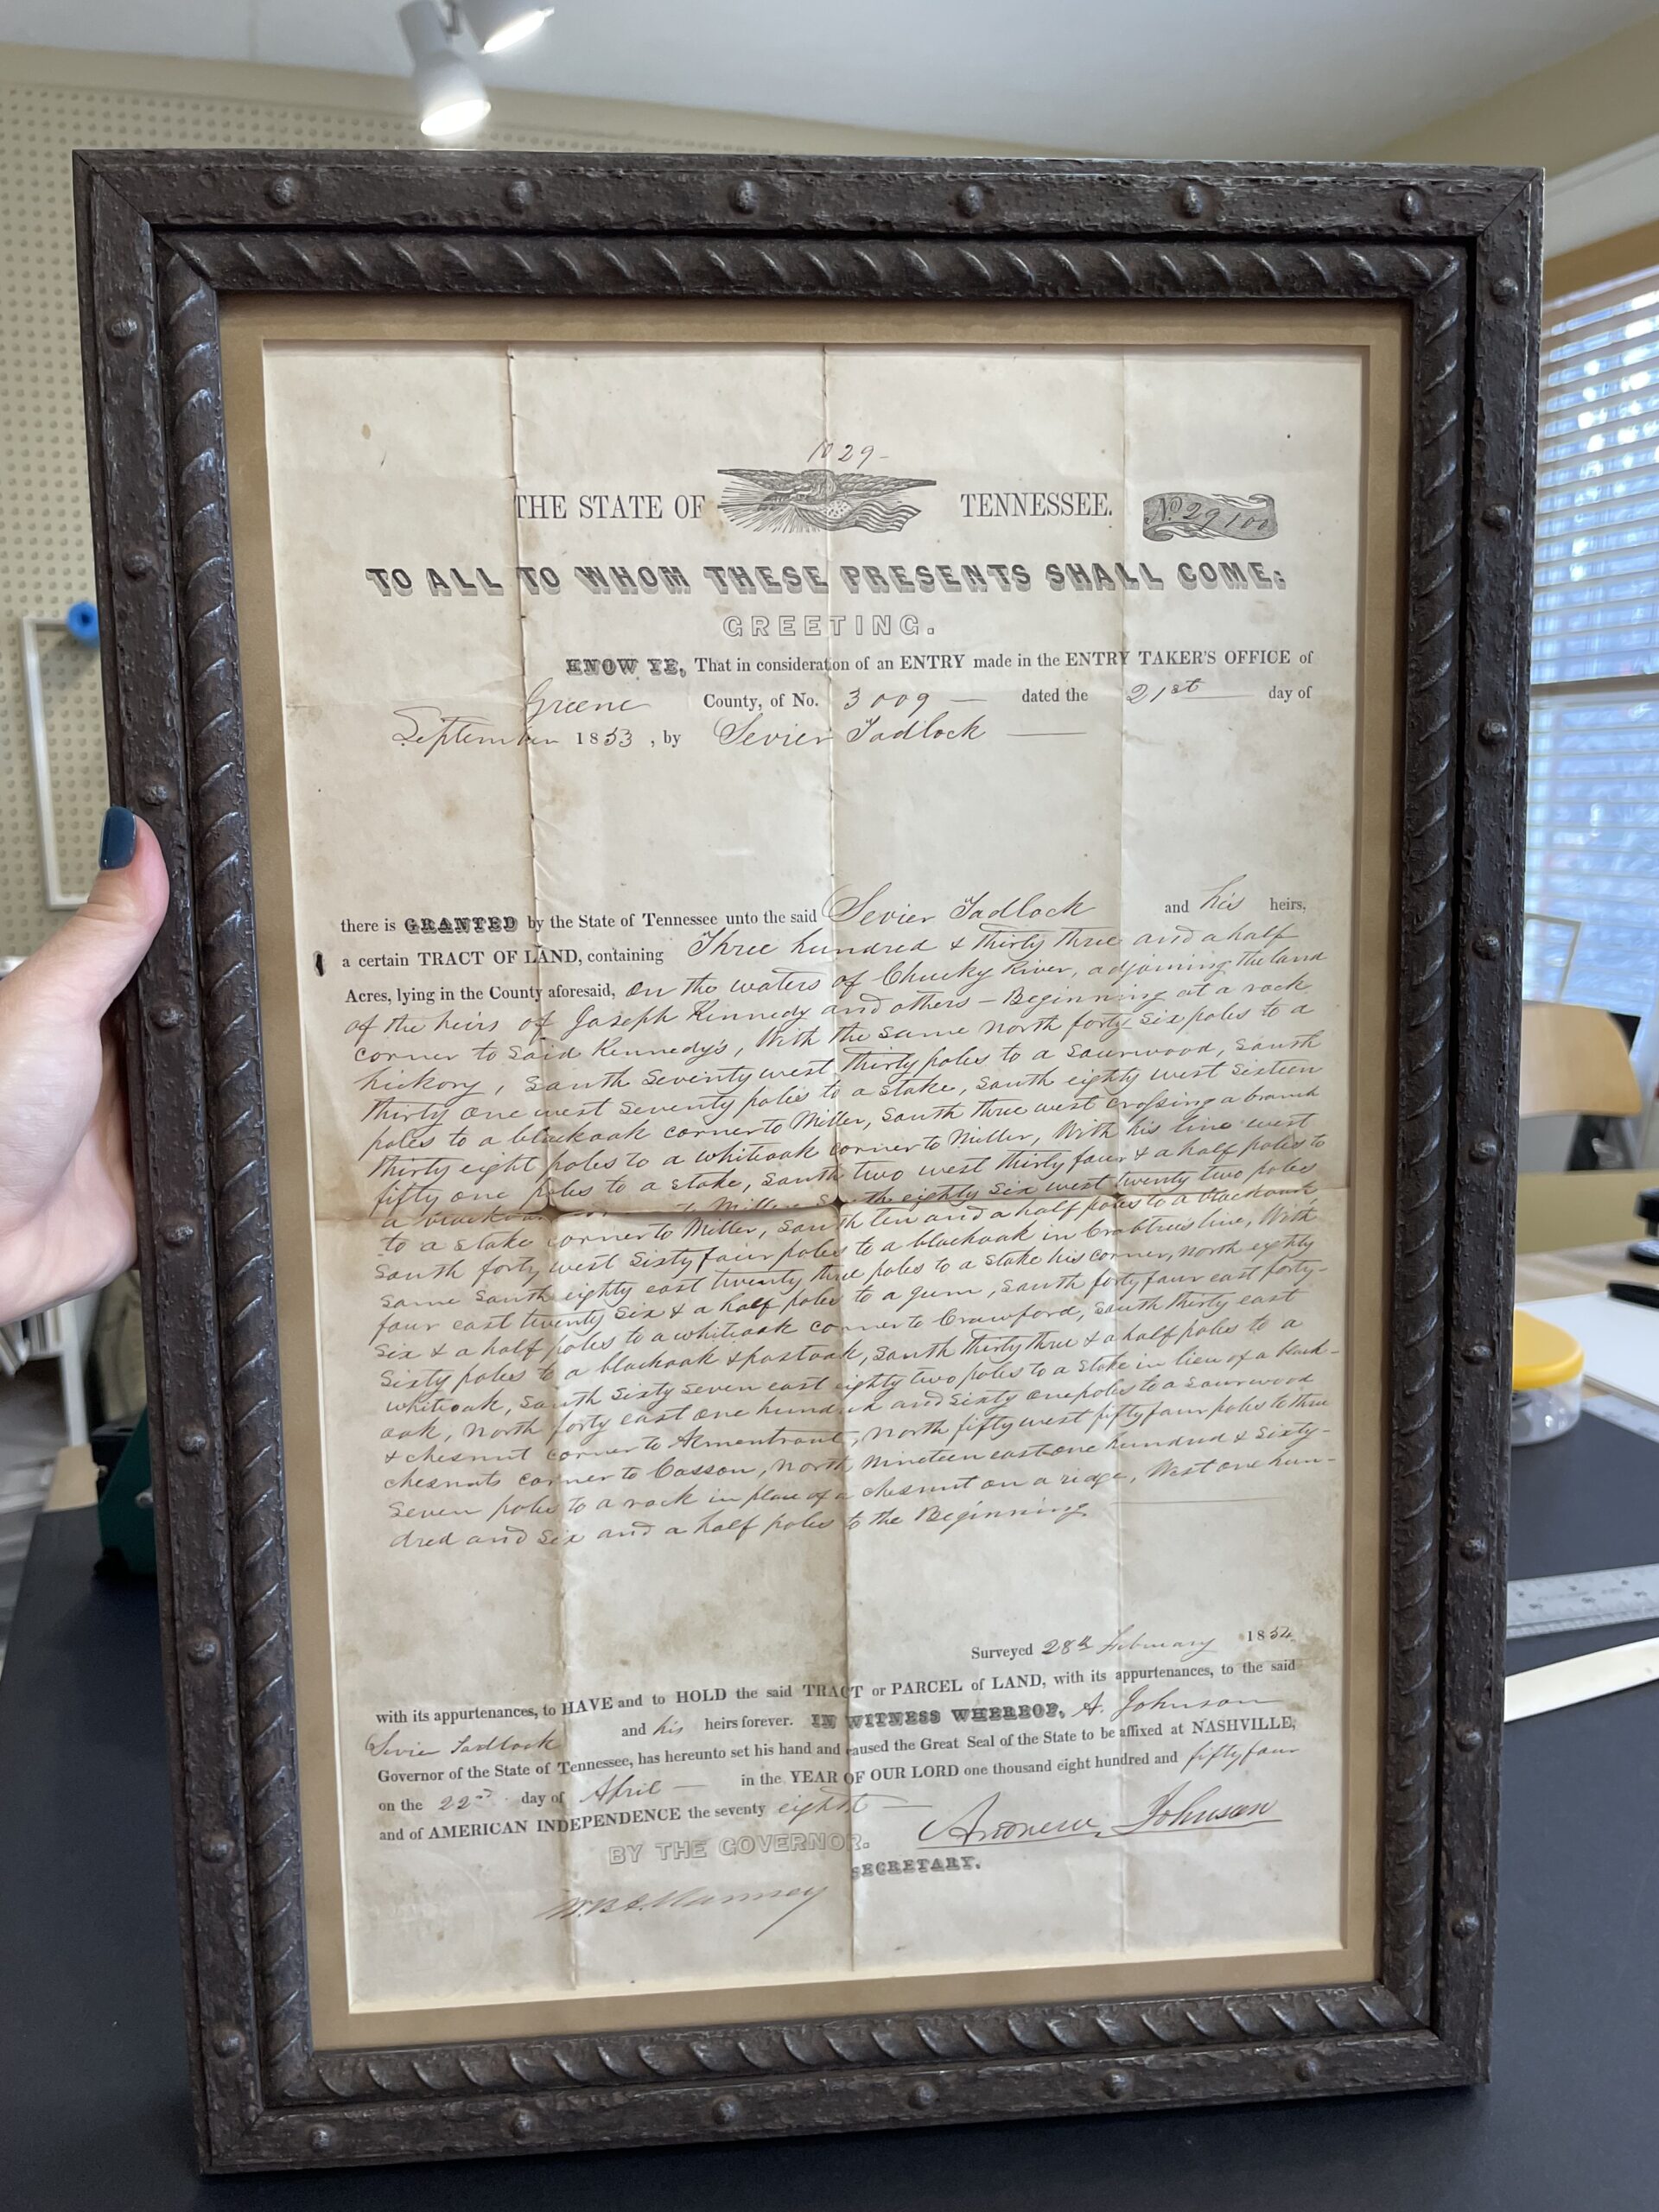 1029-
THE STATE OF TENNESSEE. No 29100
TO ALL TO WHOM THESE PRESENTS SHALL COME:
GREETING.
KNOW YE, That in consideration of an ENTRY made in the ENTRY TAKER'S OFFICE of
Greene County, of No. 3009 — dated the 21st day of
September 1853, by Sevier Tadlock —
there is GRANTED by the State of Tennessee unto the said Sevier Tadlock and his heirs,
a certain TRACT OF LAND, containing Three hundred & thirty three and a half
Acres, lying in the County aforesaid, on the waters of Chucky River, adjoining the land
of the heirs of Joseph Kennedy and others - Beginning at a rock
corner to said Kennedy's, With the same north forty six poles to a
hickory, South Seventy west thirty poles to a Sourwood, South
thirty one west Seventy poles to a stake, South eighty west Sixteen
poles to a blackoak corner to Miller, South three west crossing a branch
thirty eight poles to a whiteoak corner to Miller, With his line west
fifty one poles to a stake, South two west thirty four & a half poles to
a blackoak to Miller South eighty Six west twenty two poles
to a stake corner to Miller, South ten and a half poles to a blackoak,
South forty west Sixty four poles to a blackoak in Crabtrees line, With
Same South eighty east twenty three poles to a stake his corner, north eighty
four east twenty Six & a half poles to a gum, South forty four east forty-
Six & a half poles to a whiteoak corner to Crawford, South thirty east
Sixty poles to a blackoak & postoak, South thirty three & a half poles to a
whiteoak, South Sixty Seven east eighty two poles to a stake in lieu of a black-
oak, North forty east one hundred and Sixty one poles to a Sourwood
& chesnut corner to Armentrout, North fifty west fifty four poles to three
chesnuts corner to Casson, North Nineteen east one hundred & Sixty-
Seven poles to a rock in place of a chesnut on a ridge, West one hun-
dred and Six and a half poles to the Beginning.
Surveyed 28th February 1854
with its appurtenances, to HAVE and to HOLD the said TRACT or PARCEL of LAND, with its appurtenances, to the said
Sevier Tadlock and his heirs forever. IN WITNESS WHEREOF, A. Johnson
Governor of the State of Tennessee, has hereunto set his hand and caused the Great Seal of the State to be affixed at NASHVILLE,
on the 22nd day of April — in the YEAR OF OUR LORD one thousand eight hundred and fifty four
and of AMERICAN INDEPENDENCE the seventy eighth —
BY THE GOVERNOR. Andrew Johnson
SECRETARY.